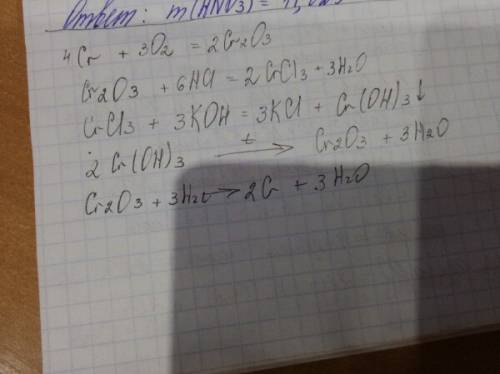 Ответ: m(HNO3) =
4Cr + 3O2 = 2Cr2O3
Cr2O3 + 6HCl = 2CrCl3 + 3H2O
CrCl3 + 3KOH = 3KCl + Cr(OH)3↓
2Cr(OH)3 t→ Cr2O3 + 3H2O
Cr2O3 + 3H2 t→ 2Cr + 3H2O